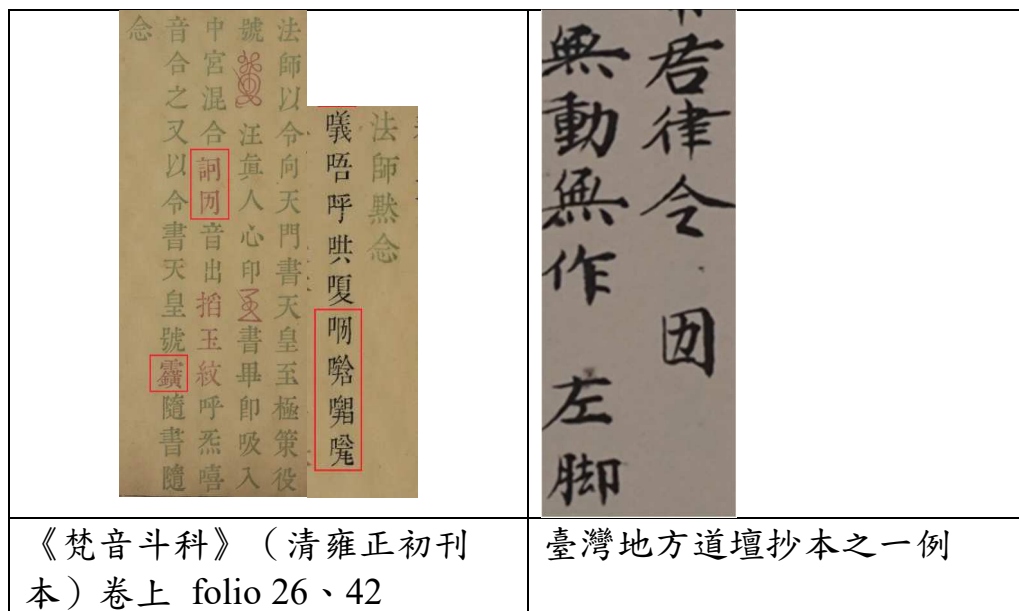 法師以令向天門書天皇至極策役
號 汪眞人心印 書畢即吸入
中宮混合 音出掐玉紋呼炁嘻
音合之又以令書天皇號 隨書隨
念
法師默念
唔呼哄嗄
君律令
無動無作 左脚
《梵音斗科》(清雍正初刊
本)卷上 folio 26、42
臺灣地方道壇抄本之一例